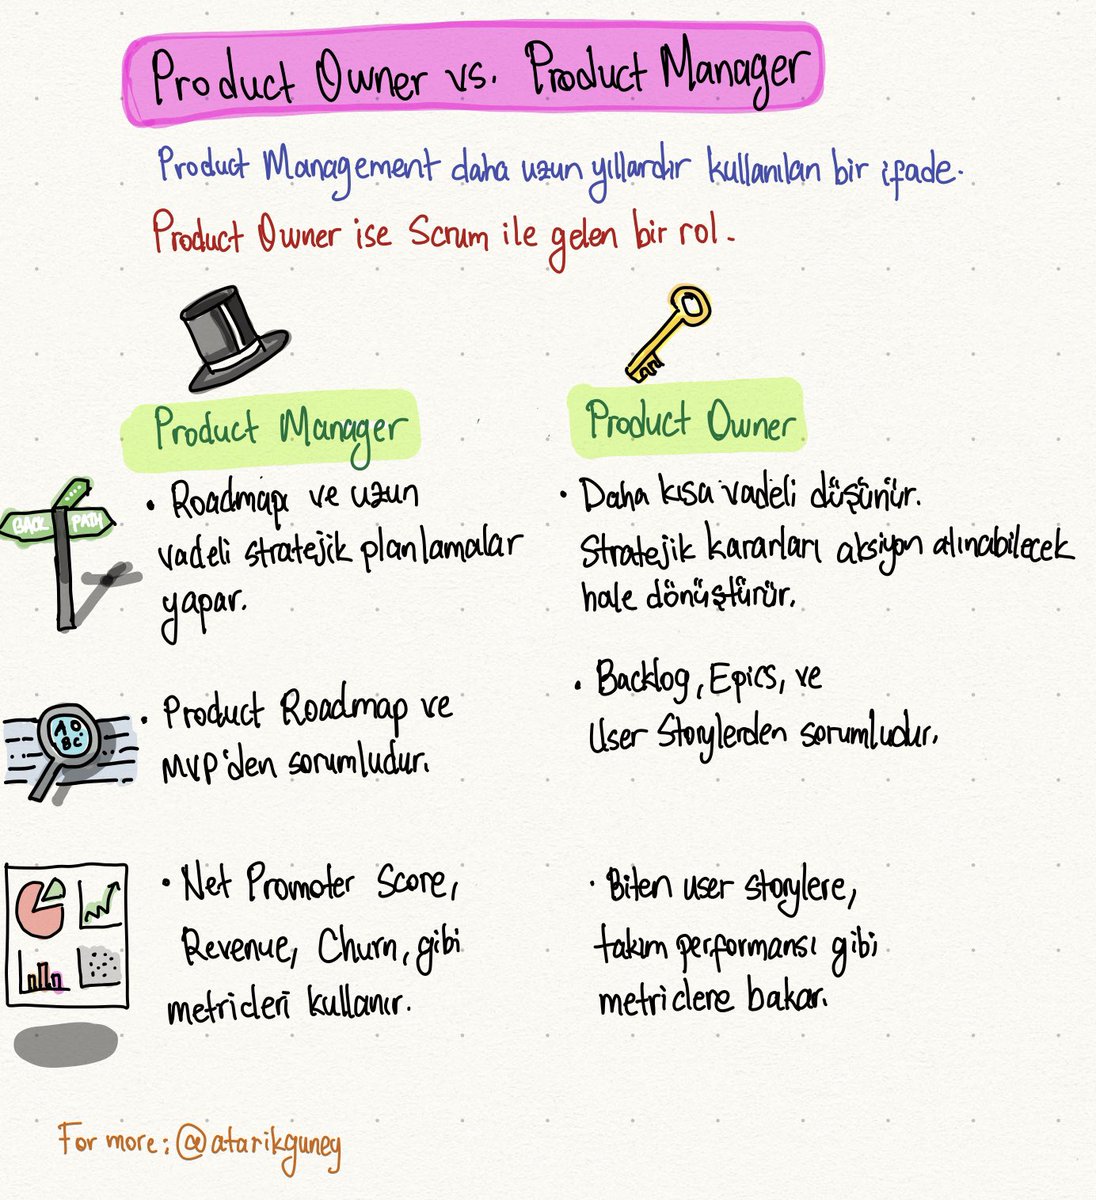 Product Owner vs. Product Manager
Product Management daha uzun yıllardır kullanılan bir ifade.
Product Owner ise Scrum ile gelen bir rol.
Product Manager
BACK PATH
• Roadmap ve uzun
vadeli stratejik planlamalar
yapar.
10
BC
• Product Roadmap ve
MVP'den sorumludur.
• Net Promoter Score,
Revenue, Churn, gibi
metricleri kullanır.
Product Owner
• Daha kısa vadeli düşünür.
Stratejik kararları aksiyon alınabilecek
hale dönüştürür.
• Backlog, Epics, ve
User Storylerden sorumludur.
• Biten user storylere,
takım performansı gibi
metriclere bakar.
For more: @atarikguney